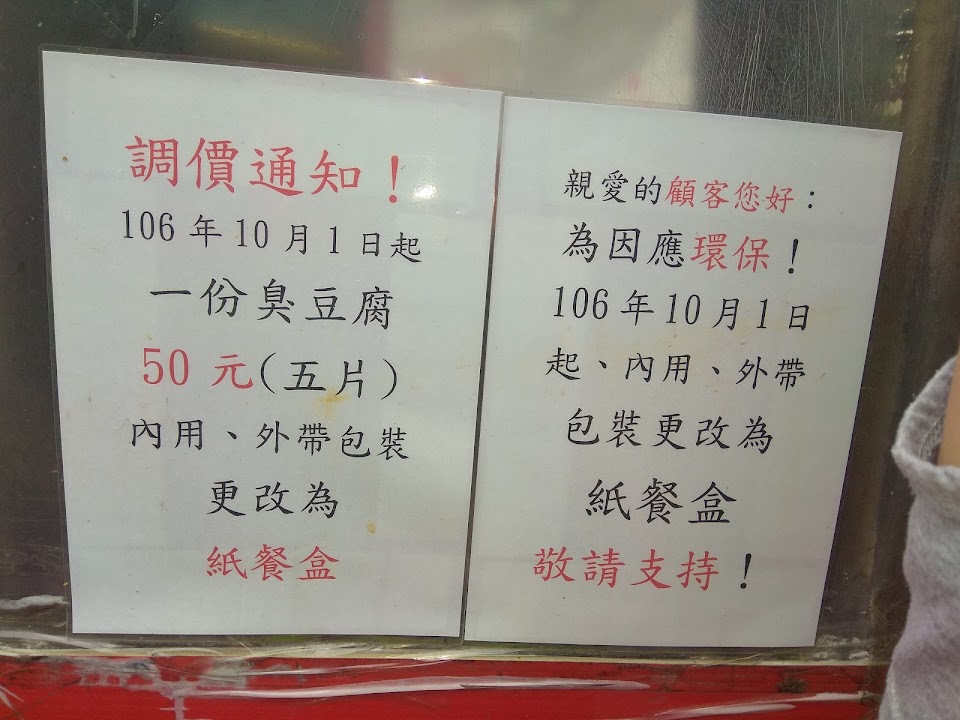 調價通知！
106年10月1日起
一份臭豆腐
50元(五片)
內用、外帶包裝
更改為
紙餐盒
親愛的顧客您好：
為因應環保！
106年10月1日
起、內用、外帶
包裝更改為
紙餐盒
敬請支持！